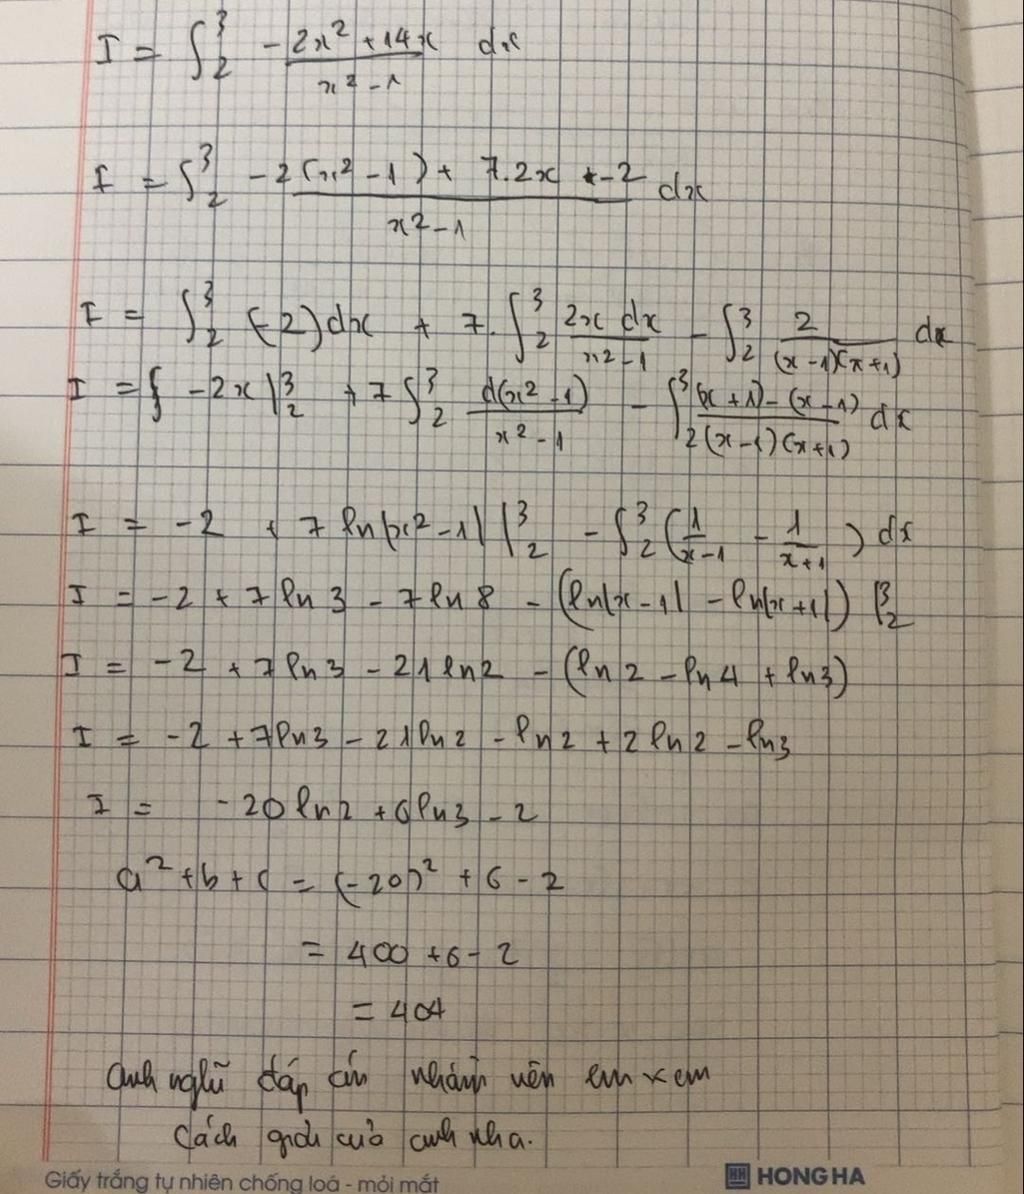 I = ∫₂³ -(2x² + 14x)/(x² - 1) dx
I = ∫₂³ (-2(x² - 1) + 7.2x + -2)/(x² - 1) dx
I = ∫₂³ (-2)dx + 7.∫₂³ 2x dx/(x² - 1) - ∫₂³ 2/((x - 1)(x + 1)) dx
I = { -2x |₂³ + 7∫₂³ d(x² - 1)/(x² - 1) - ∫₂³ ((x + 1) - (x - 1))/((x - 1)(x + 1)) dx
I = -2 + 7 ln|x² - 1| |₂³ - ∫₂³ (1/(x - 1) - 1/(x + 1)) dx
I = -2 + 7 ln 3 - 7 ln 8 - (ln|x - 1| - ln|x + 1|) |₂³
I = -2 + 7 ln 3 - 21 ln 2 - (ln 2 - ln 4 + ln 3)
I = -2 + 7 ln 3 - 21 ln 2 - ln 2 + 2 ln 2 - ln 3
I = -20 ln 2 + 6 ln 3 - 2
a² + b + c = (-20)² + 6 - 2
= 400 + 6 - 2
= 404
anh nghĩ đáp án nhầm nên em xem
cách giải của anh nha.
Giấy trắng tự nhiên chống loá - mỏi mắt
HH HONG HA